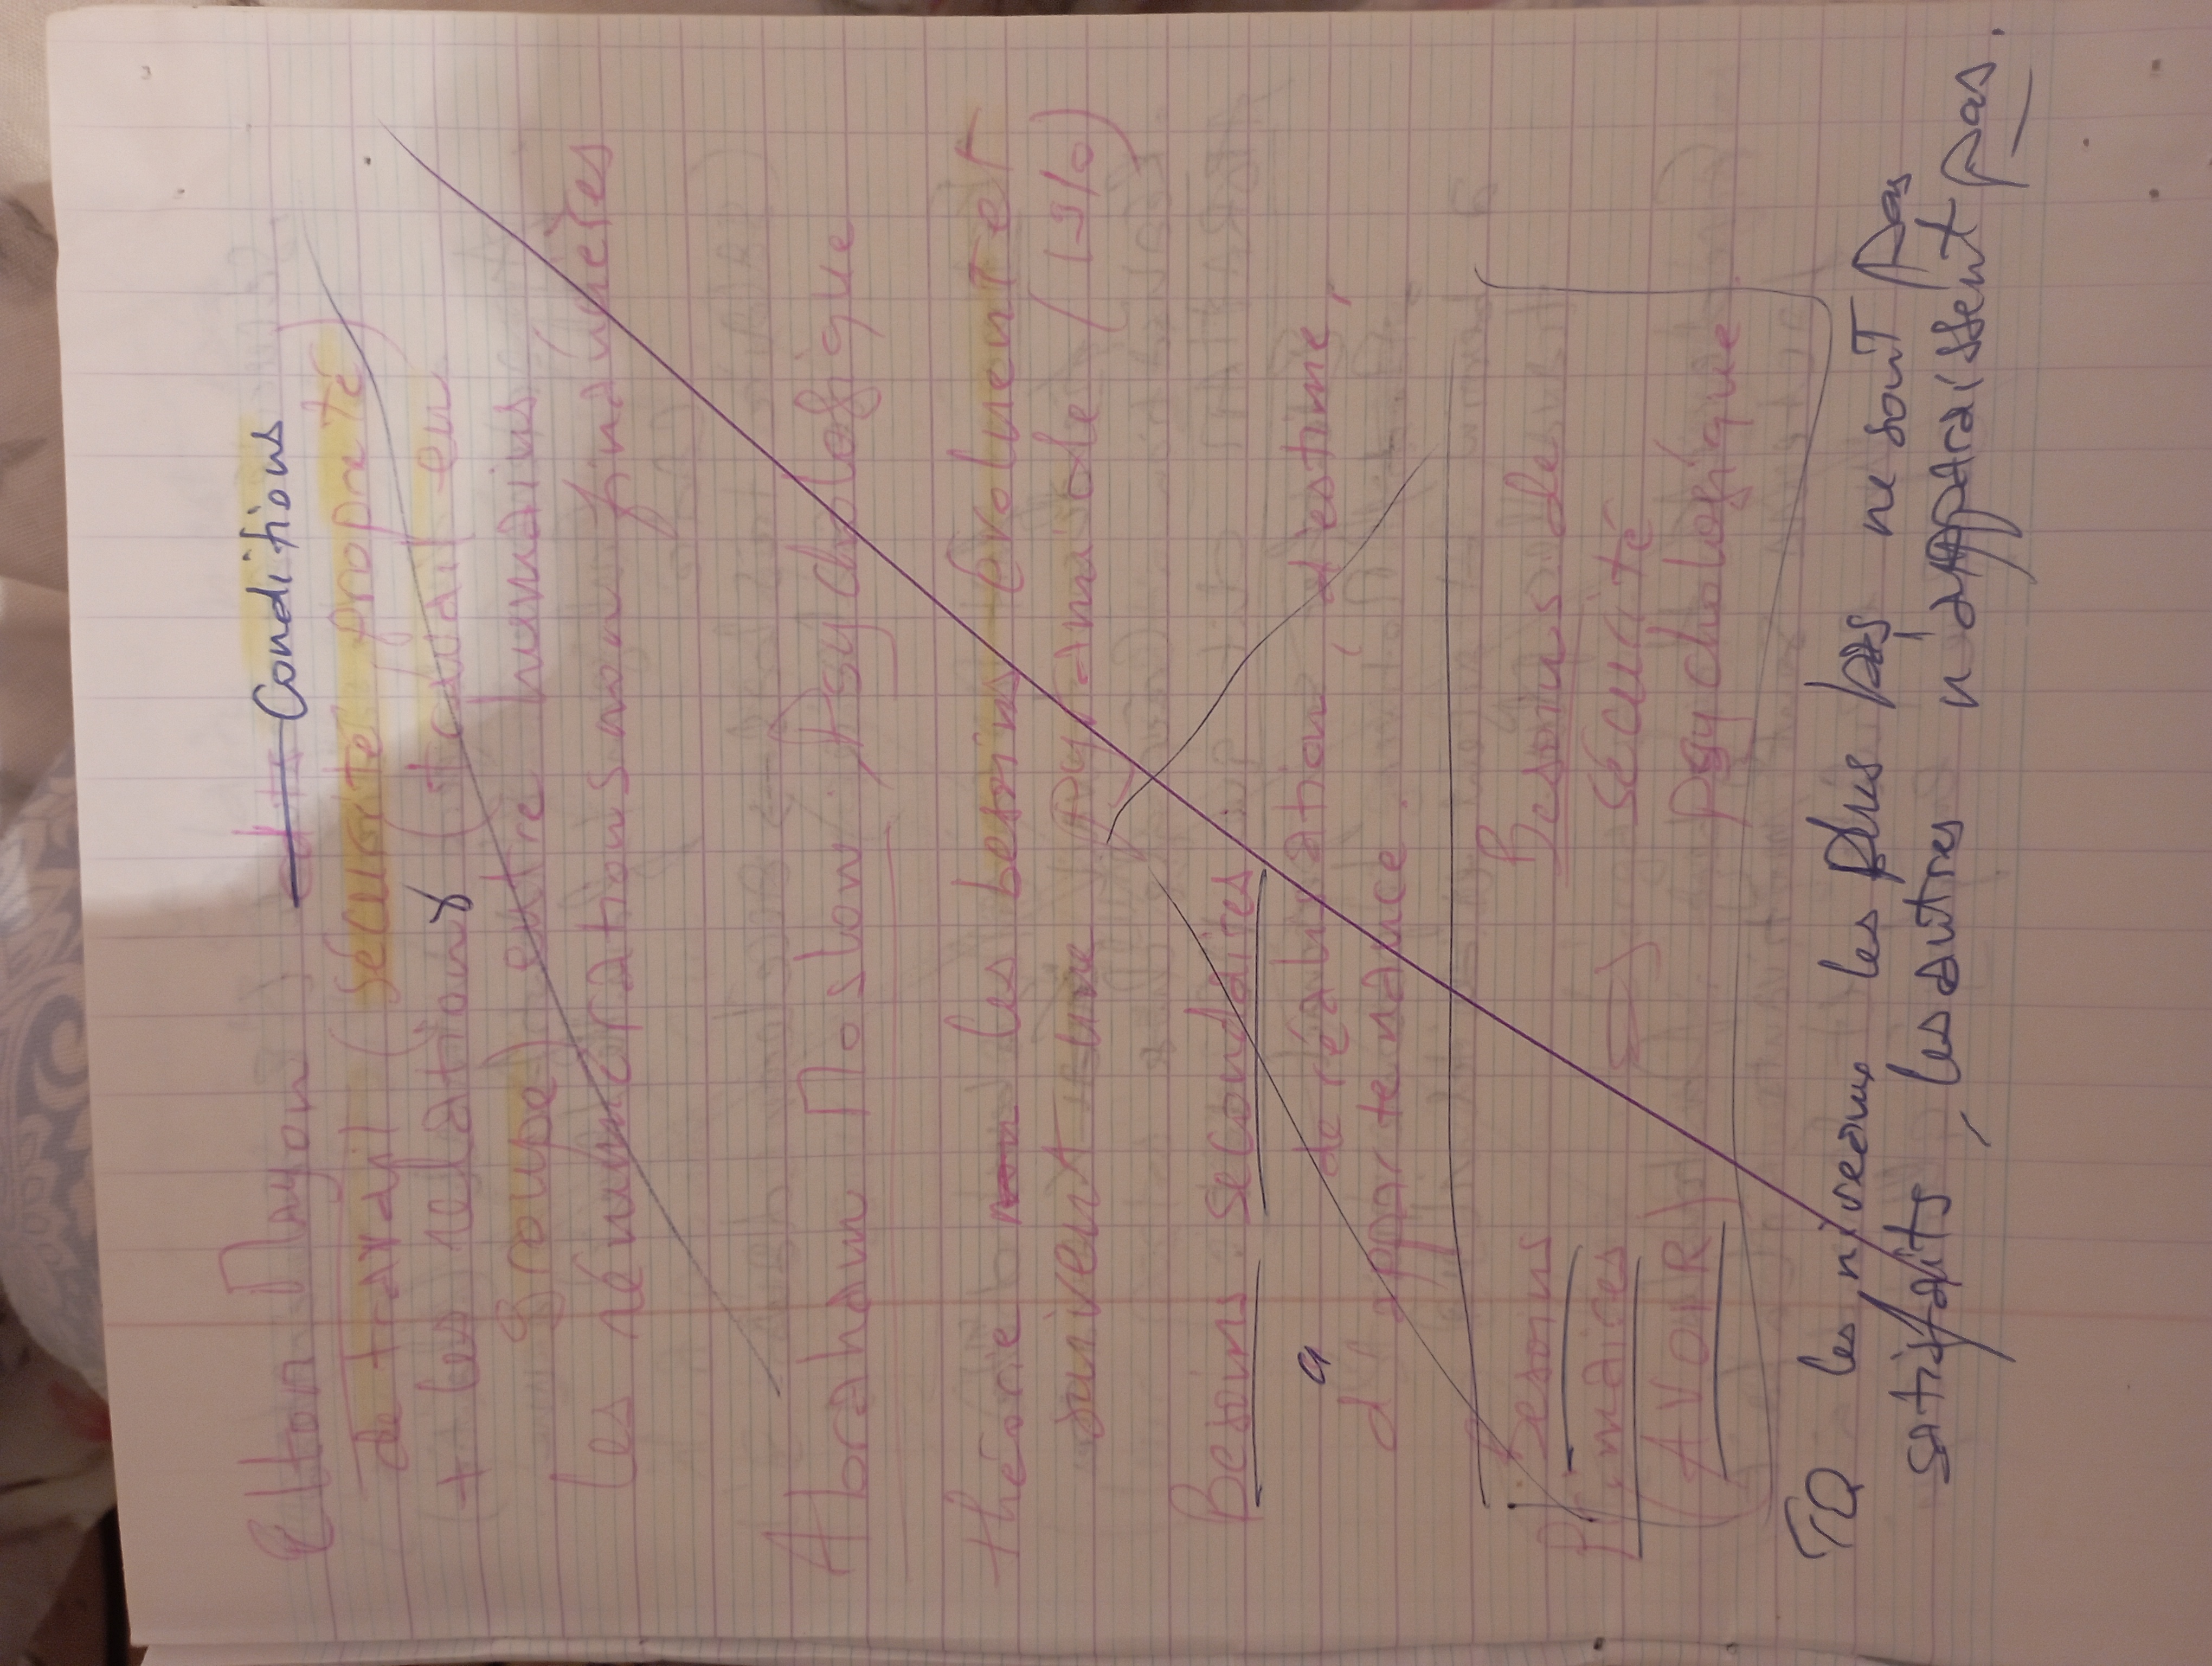 Elton Mayon : Conditions
de travail (sécurité, propreté)
+ les relations (travail en
groupe) entre humains
les rénumérations non financières
Abraham Maslow : Psychologique
théorie non les besoins évoluent et
suivent une pyramide (1910)
Besoins secondaires :
a de réalisation, d'estime,
d'appartenance.
Besoins
primaires
(AVOIR)
⇒
Besoins de
sécurité
psychologique.
TQ les niveaux les plus bas ne sont pas
satisfaits, les autres n'apparaissent pas.